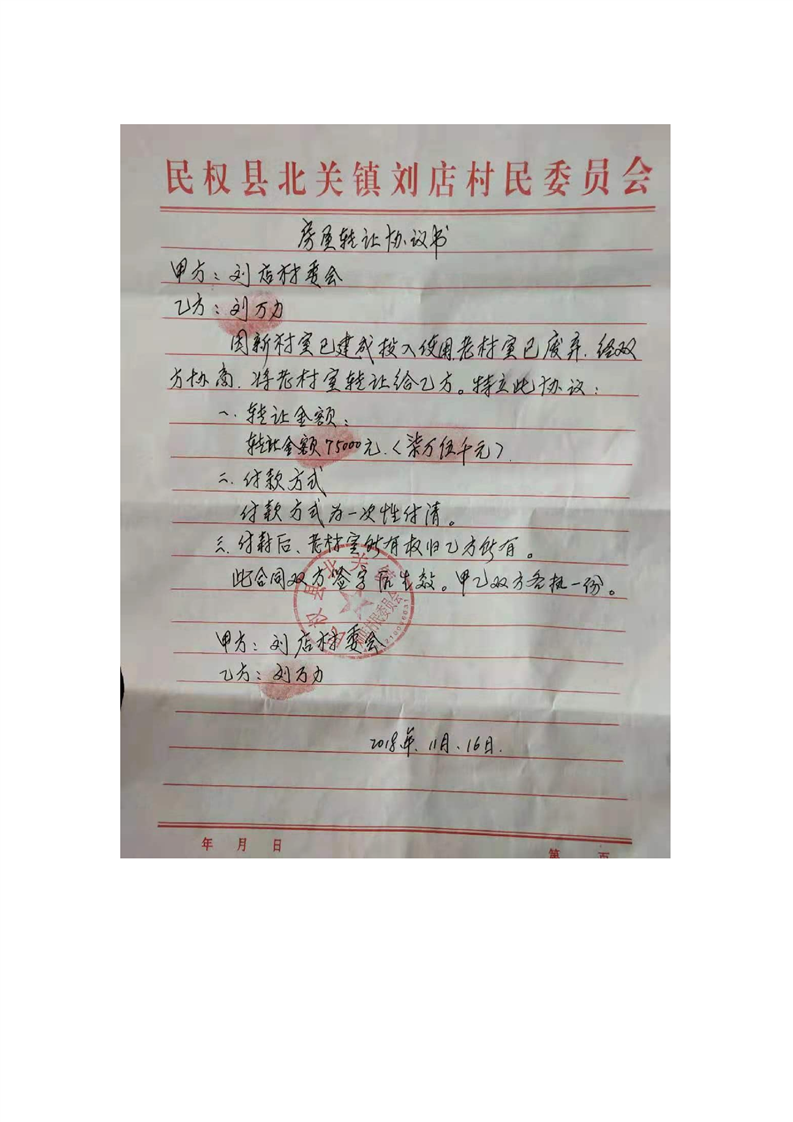 民权县北关镇刘店村民委员会
房屋转让协议书
甲方：刘店村委会
乙方：刘万力
因新村室已建成投入使用，老村室已废弃，经双
方协商，将老村室转让给乙方。特立此协议：
一、转让金额：
转让金额75000元.（柒万伍千元）.
二、付款方式
付款方式为一次性付清。
三、付款后、老村室所有权归乙方所有。
此合同双方签字后生效。甲乙双方各执一份。
甲方：刘店村委会
乙方：刘万力
2018年.11月.16日.
年 月 日
第 页